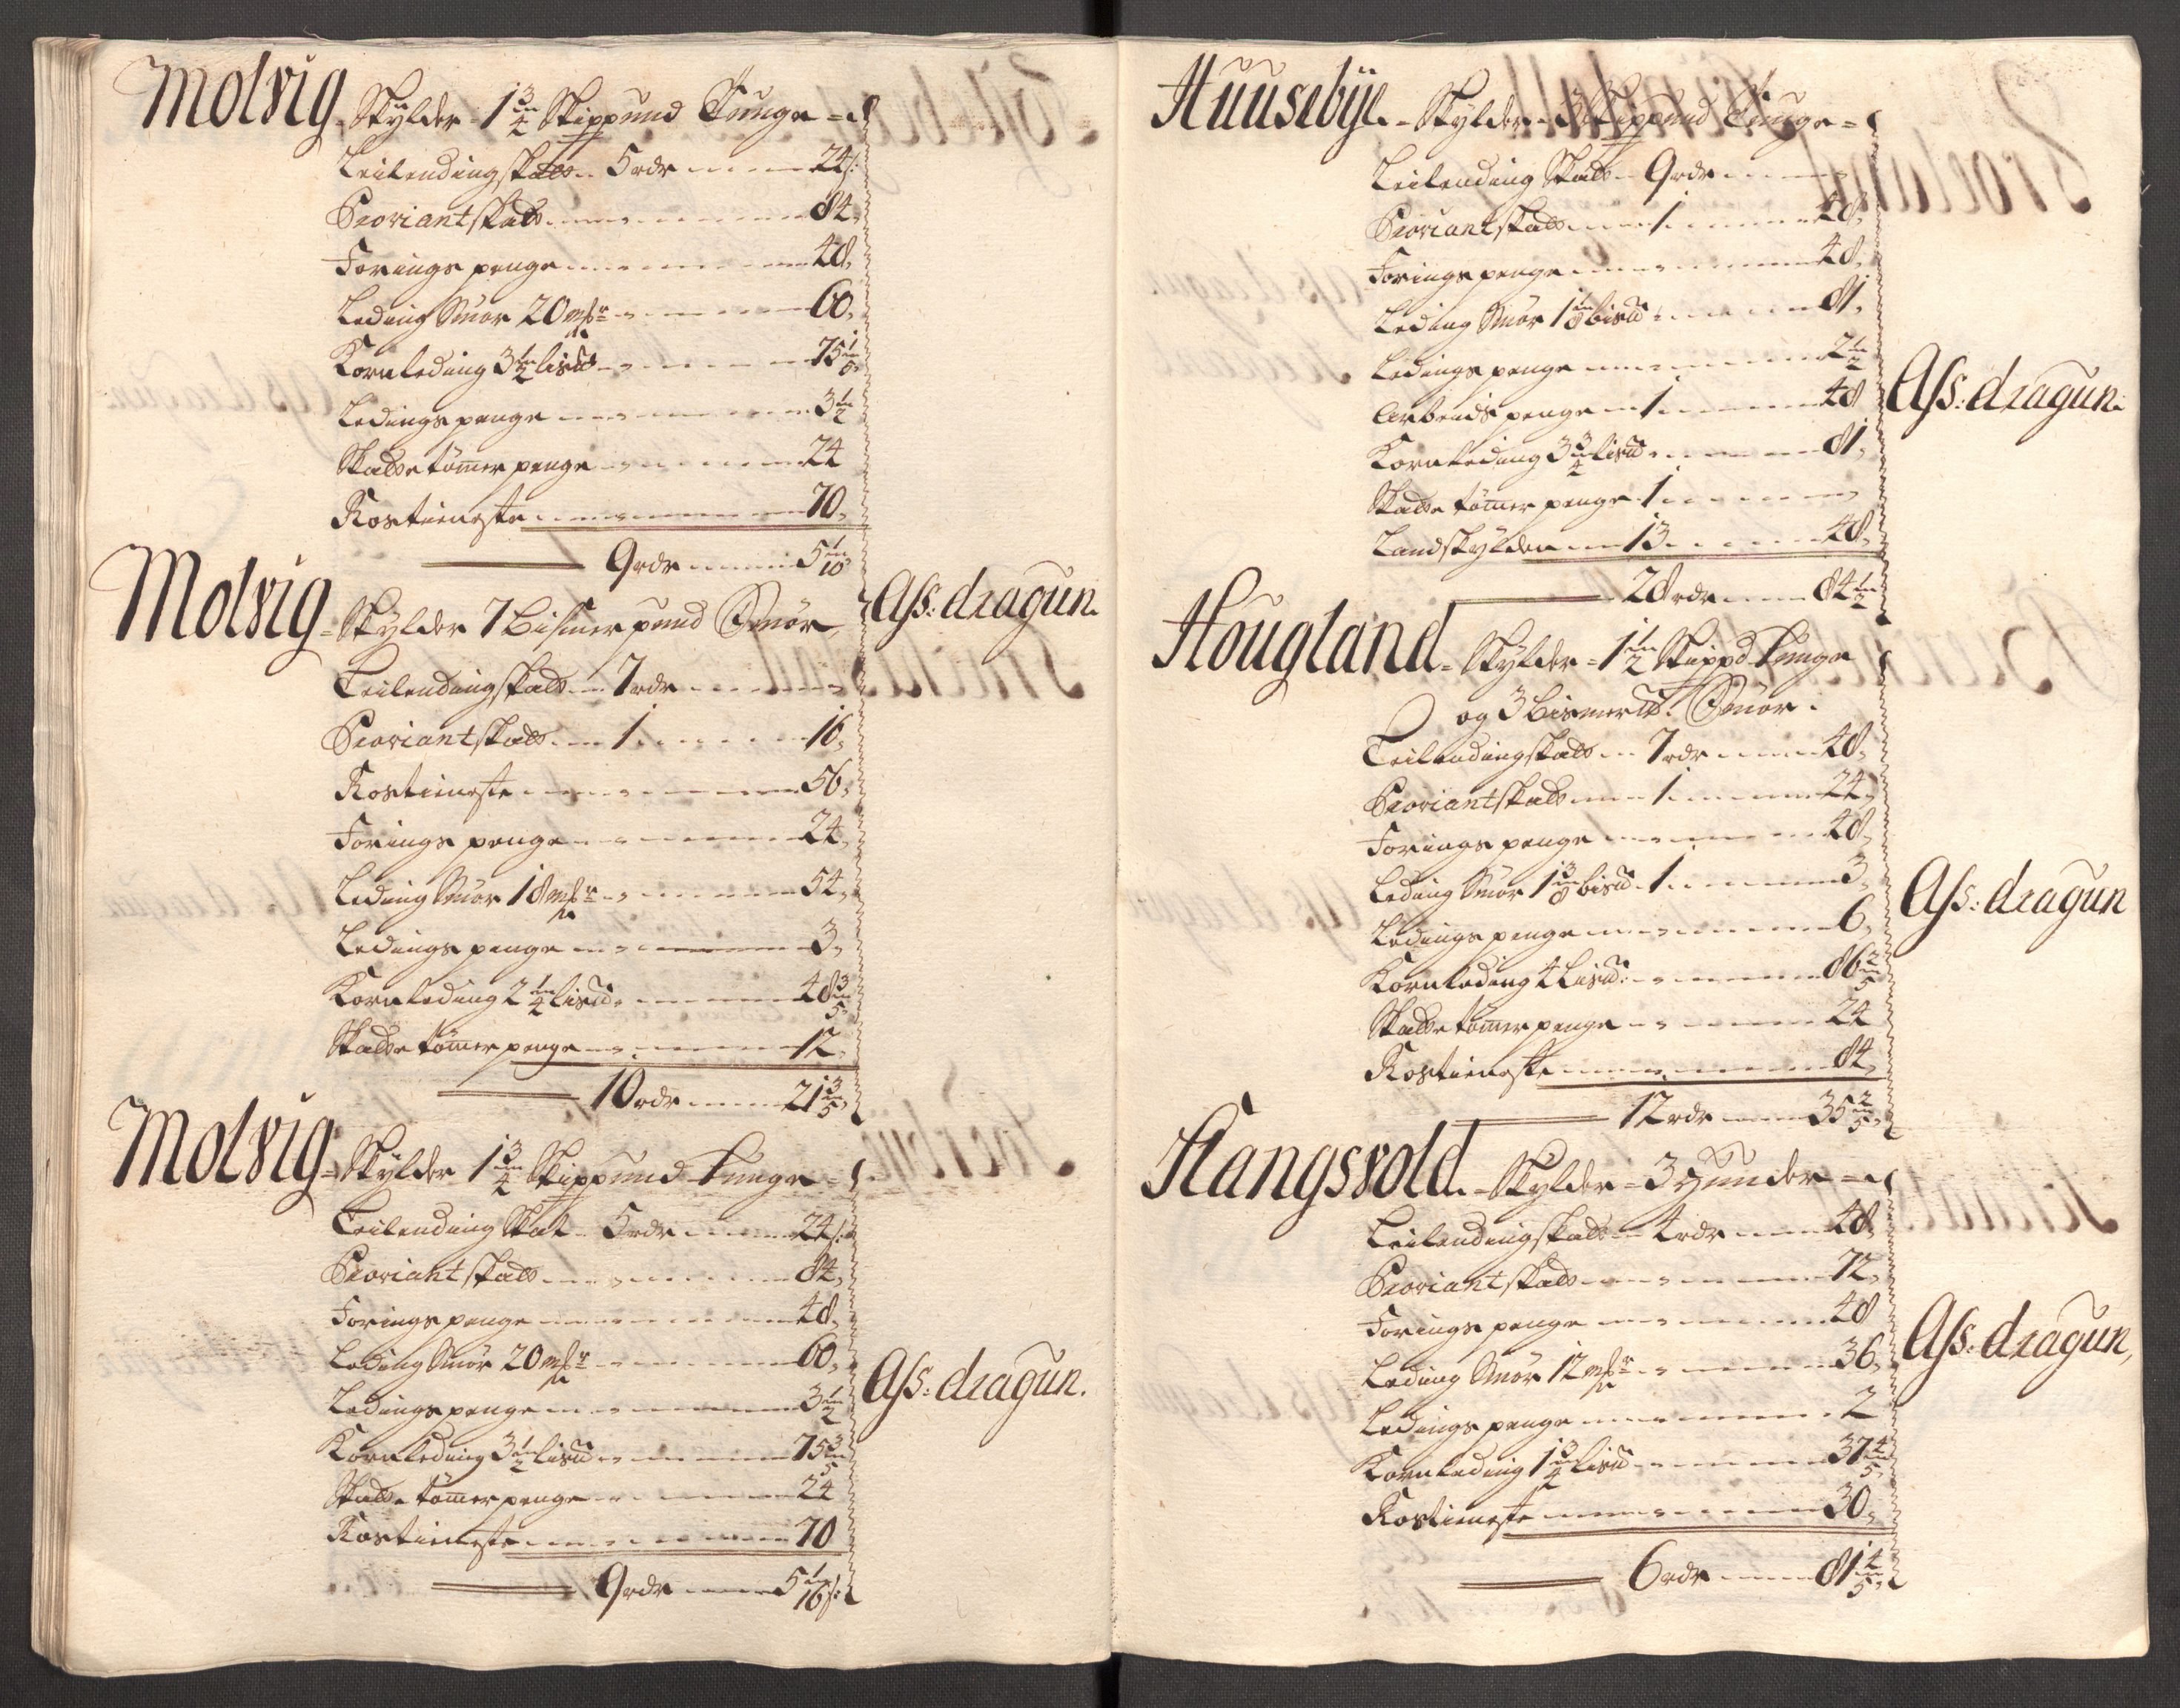 Molvig - Skylder - 1 3/4 Skippund Tunge
Leilendingskatt - 5 rdr - 24 s:
Proviantskatt - 84
Forings penge - 48
Leding Smør 20 mkr - 60
Kornleding 3 1/2 lispd - 75 1/5
Ledings penge - 3 1/2
Skatte tømmer penge - 24
Rostieneste - 70
9 rdr - 5 1/10
Molvig - Skylder 7 Bismerpund Smør
Ass: dragun.
Leilendingskatt - 7 rdr
Proviantskatt - 1 - 16
Rostieneste - 56
Forings penge - 24
Leding Smør 18 mkr - 54
Ledings penge - 3
Kornleding 2 1/4 lispd - 48 3/5
Skatte tømmer penge - 12
10 rdr - 21 3/5
Molvig - Skylder 1 3/4 Skippund Tunge
Leilending Skat - 5 rdr - 24 s:
Proviant skatt - 84
Forings penge - 48
Leding Smør 20 mkr - 60
Ass: dragun.
Ledings penge - 3 1/2
Kornleding 3 1/2 lispd - 75 3/5
Skatte tømmer penge - 24
Rostieneste - 70
9 rdr - 5 1/16 s:
Huusebÿe - Skylder - 3 Skippund Tunge
Leilending Skatt - 9 rdr
Proviantskatt - 1 - 48
Forings penge - 48
Leding Smør 1 1/8 bispd - 81
Ledings penge - 2 1/2
Arbeids penge - 1 - 48
Ass: dragun.
Kornleding 3 3/4 lispd - 81
Skatte tømmer penge 1
Landskylden - 13 - 48
28 rdr - 84 1/2
Hougland - Skylder - 1 1/2 Skippd Tunge
og 3 Bismerpd. Smør.
Leilendingskatt - 7 rdr - 48
Proviantskatt - 1 - 24
Forings penge - 48
Leding Smør 1 3/8 bispd - 1 - 3
Ass: dragun
Ledings penge - 6
Kornleding 4 Lispd: - 86 2/5
Skatte tømmer penge - 24
Rostieneste - 84
12 rdr - 35 2/5
Hangsvold - Skylder - 3 Hunder
Leilendingskatt - 4 rdr - 48
Proviantskatt - 72
Forings penge - 48
Ass: dragun,
Leding Smør 12 mkr - 36
Ledings penge - 2
Kornleding 1 3/4 lispd - 37 4/5
Rostieneste - 30
6 rdr - 81 4/5